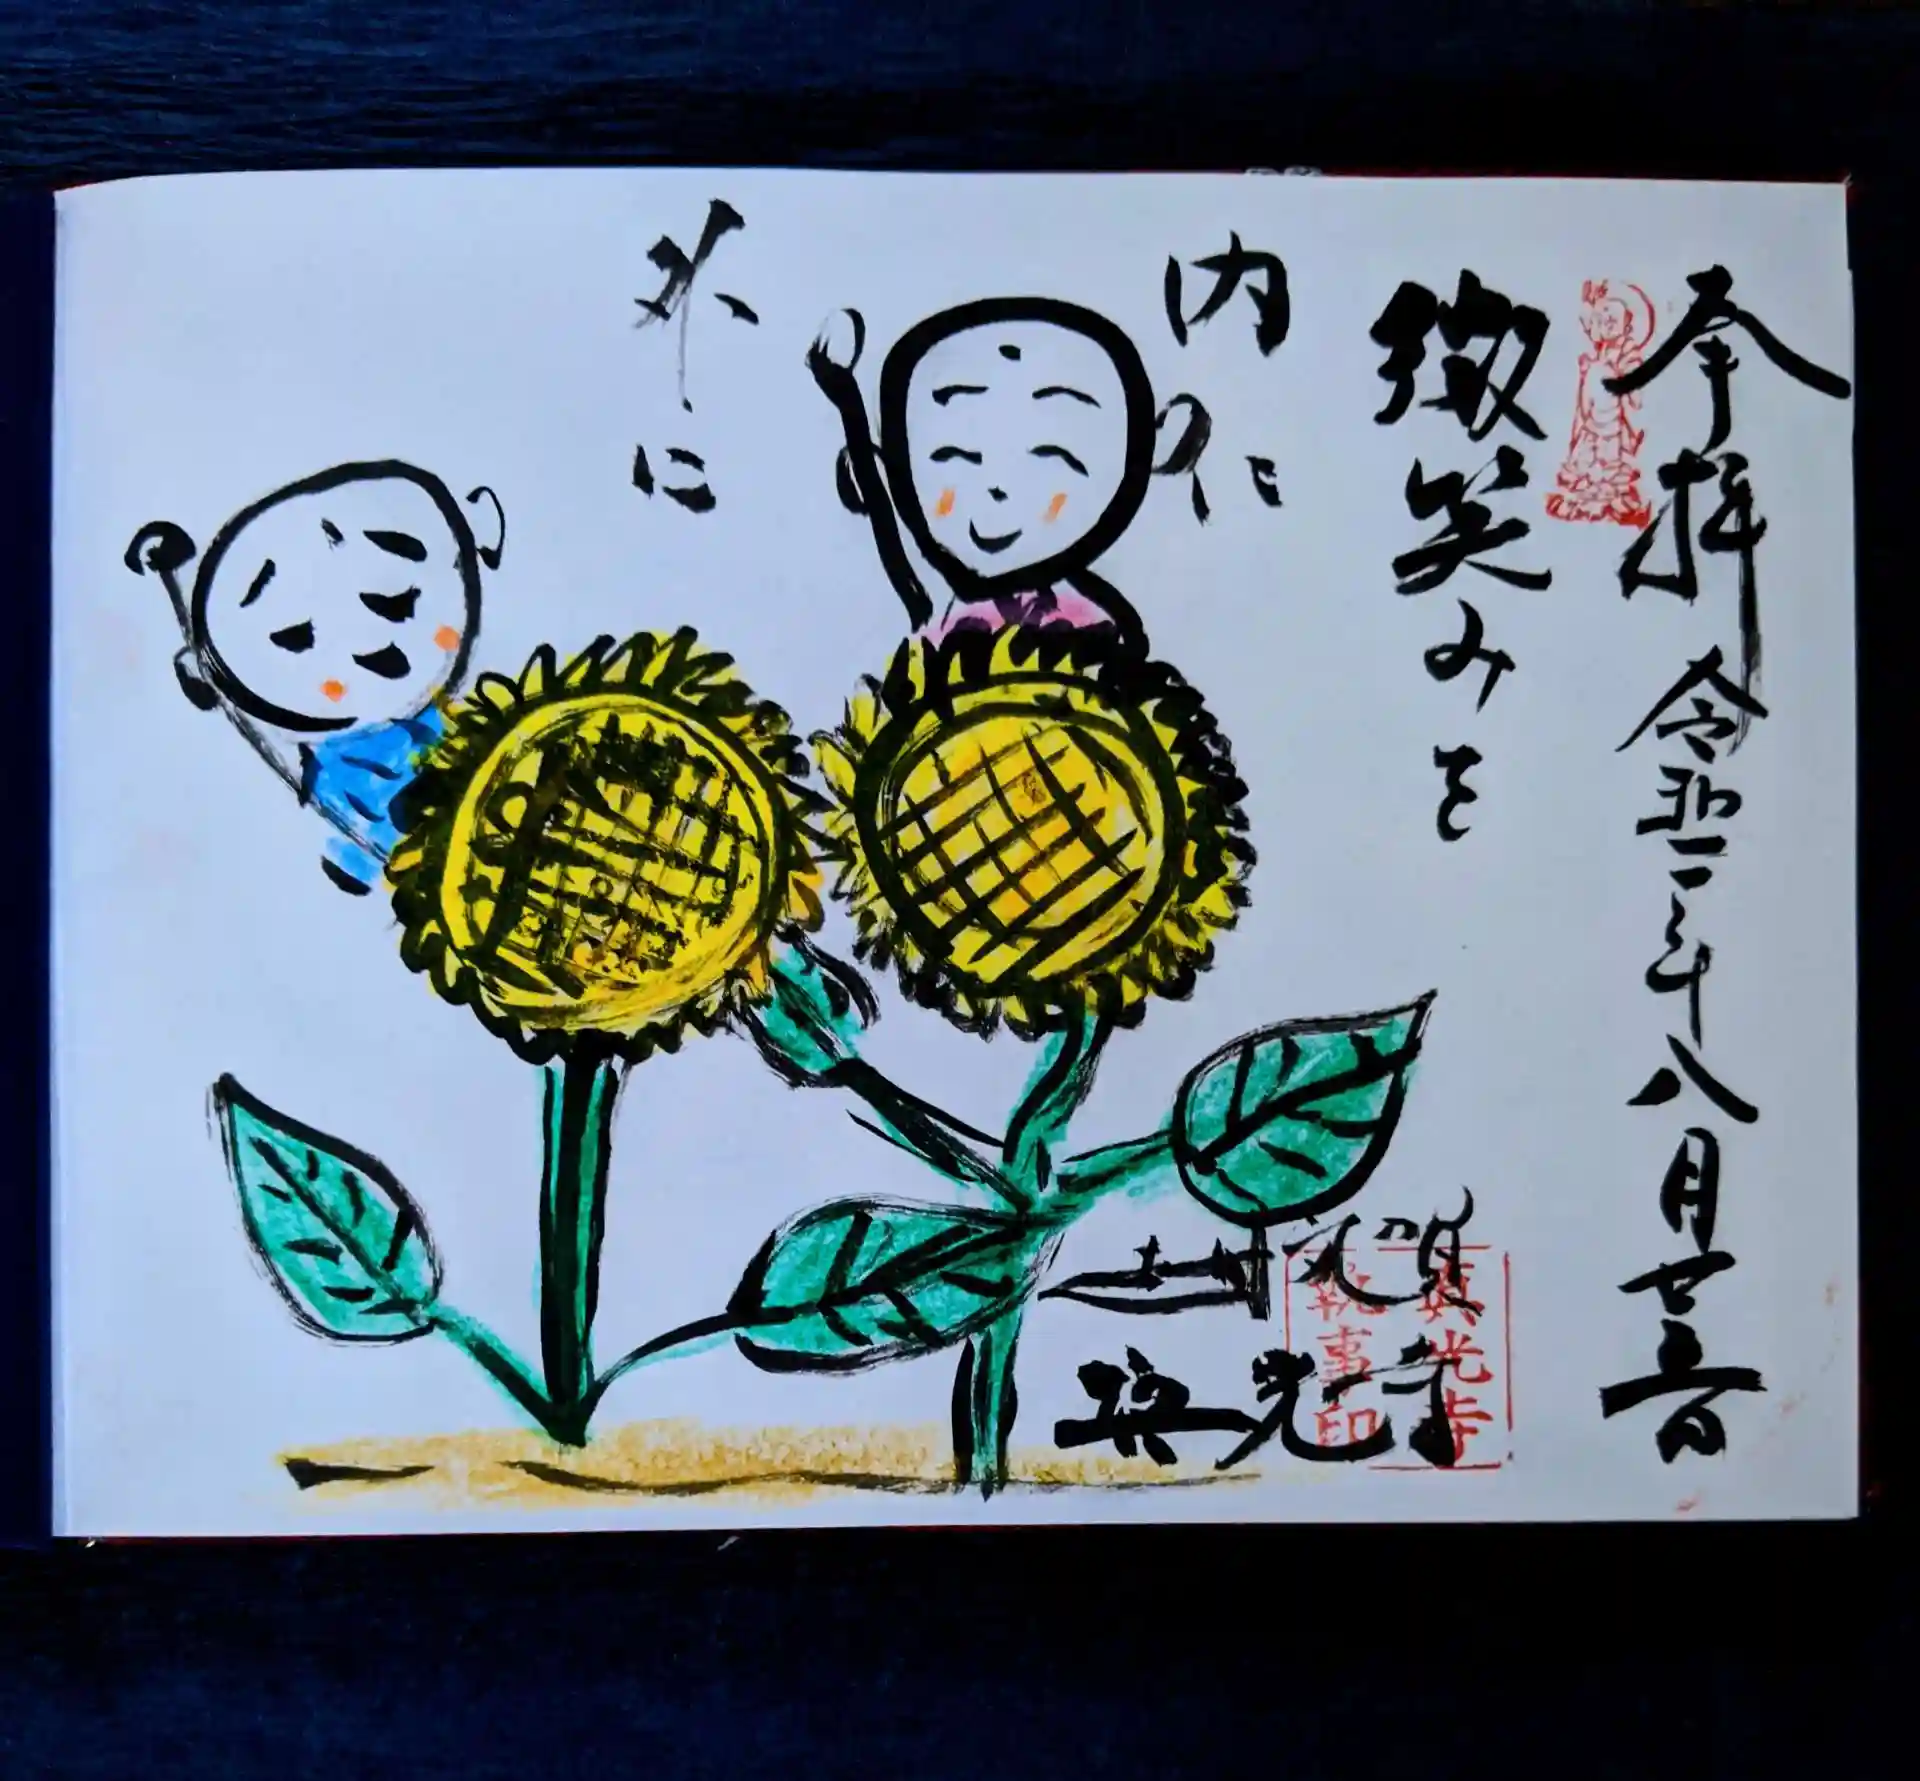 奉拝 令和二年八月廿五日
微笑みを
内に
外に
真光寺
眞光寺
執事印